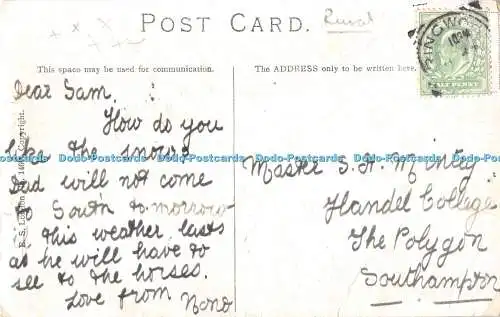 POST CARD.
Rural
INGWO
HALFPENNY
This space may be used for communication.
The ADDRESS only to be written here.
Dear Sam,
How do you
like the snow?
Dad will not come
to South to-morrow
this weather lasts
as he will have to
see to the horses.
Love from Nono
Master S. A.
Handel College
The Polygon
Southampton
Copyright.
Dodo-Postcards Dodo-Postcards Dodo-Postcards Dodo-Postcards Dodo-Postcards Dodo-Postcards Dodo-Postcards